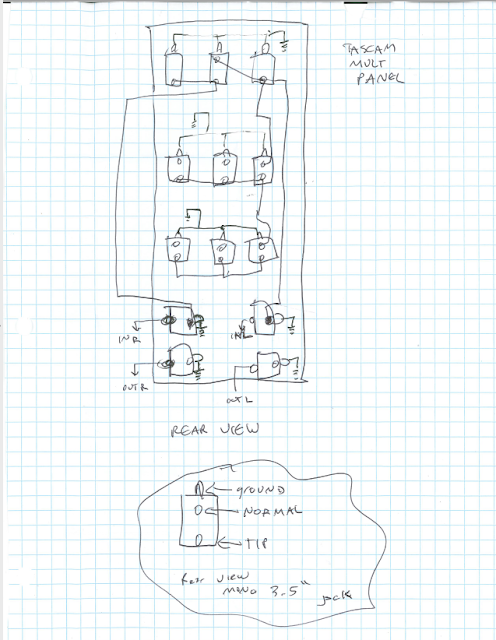 TASCAM
MULT
PANEL
IN R
IN L
OUT R
OUT L
REAR VIEW
GROUND
NORMAL
TIP
Rear view
mono 3.5"
jack